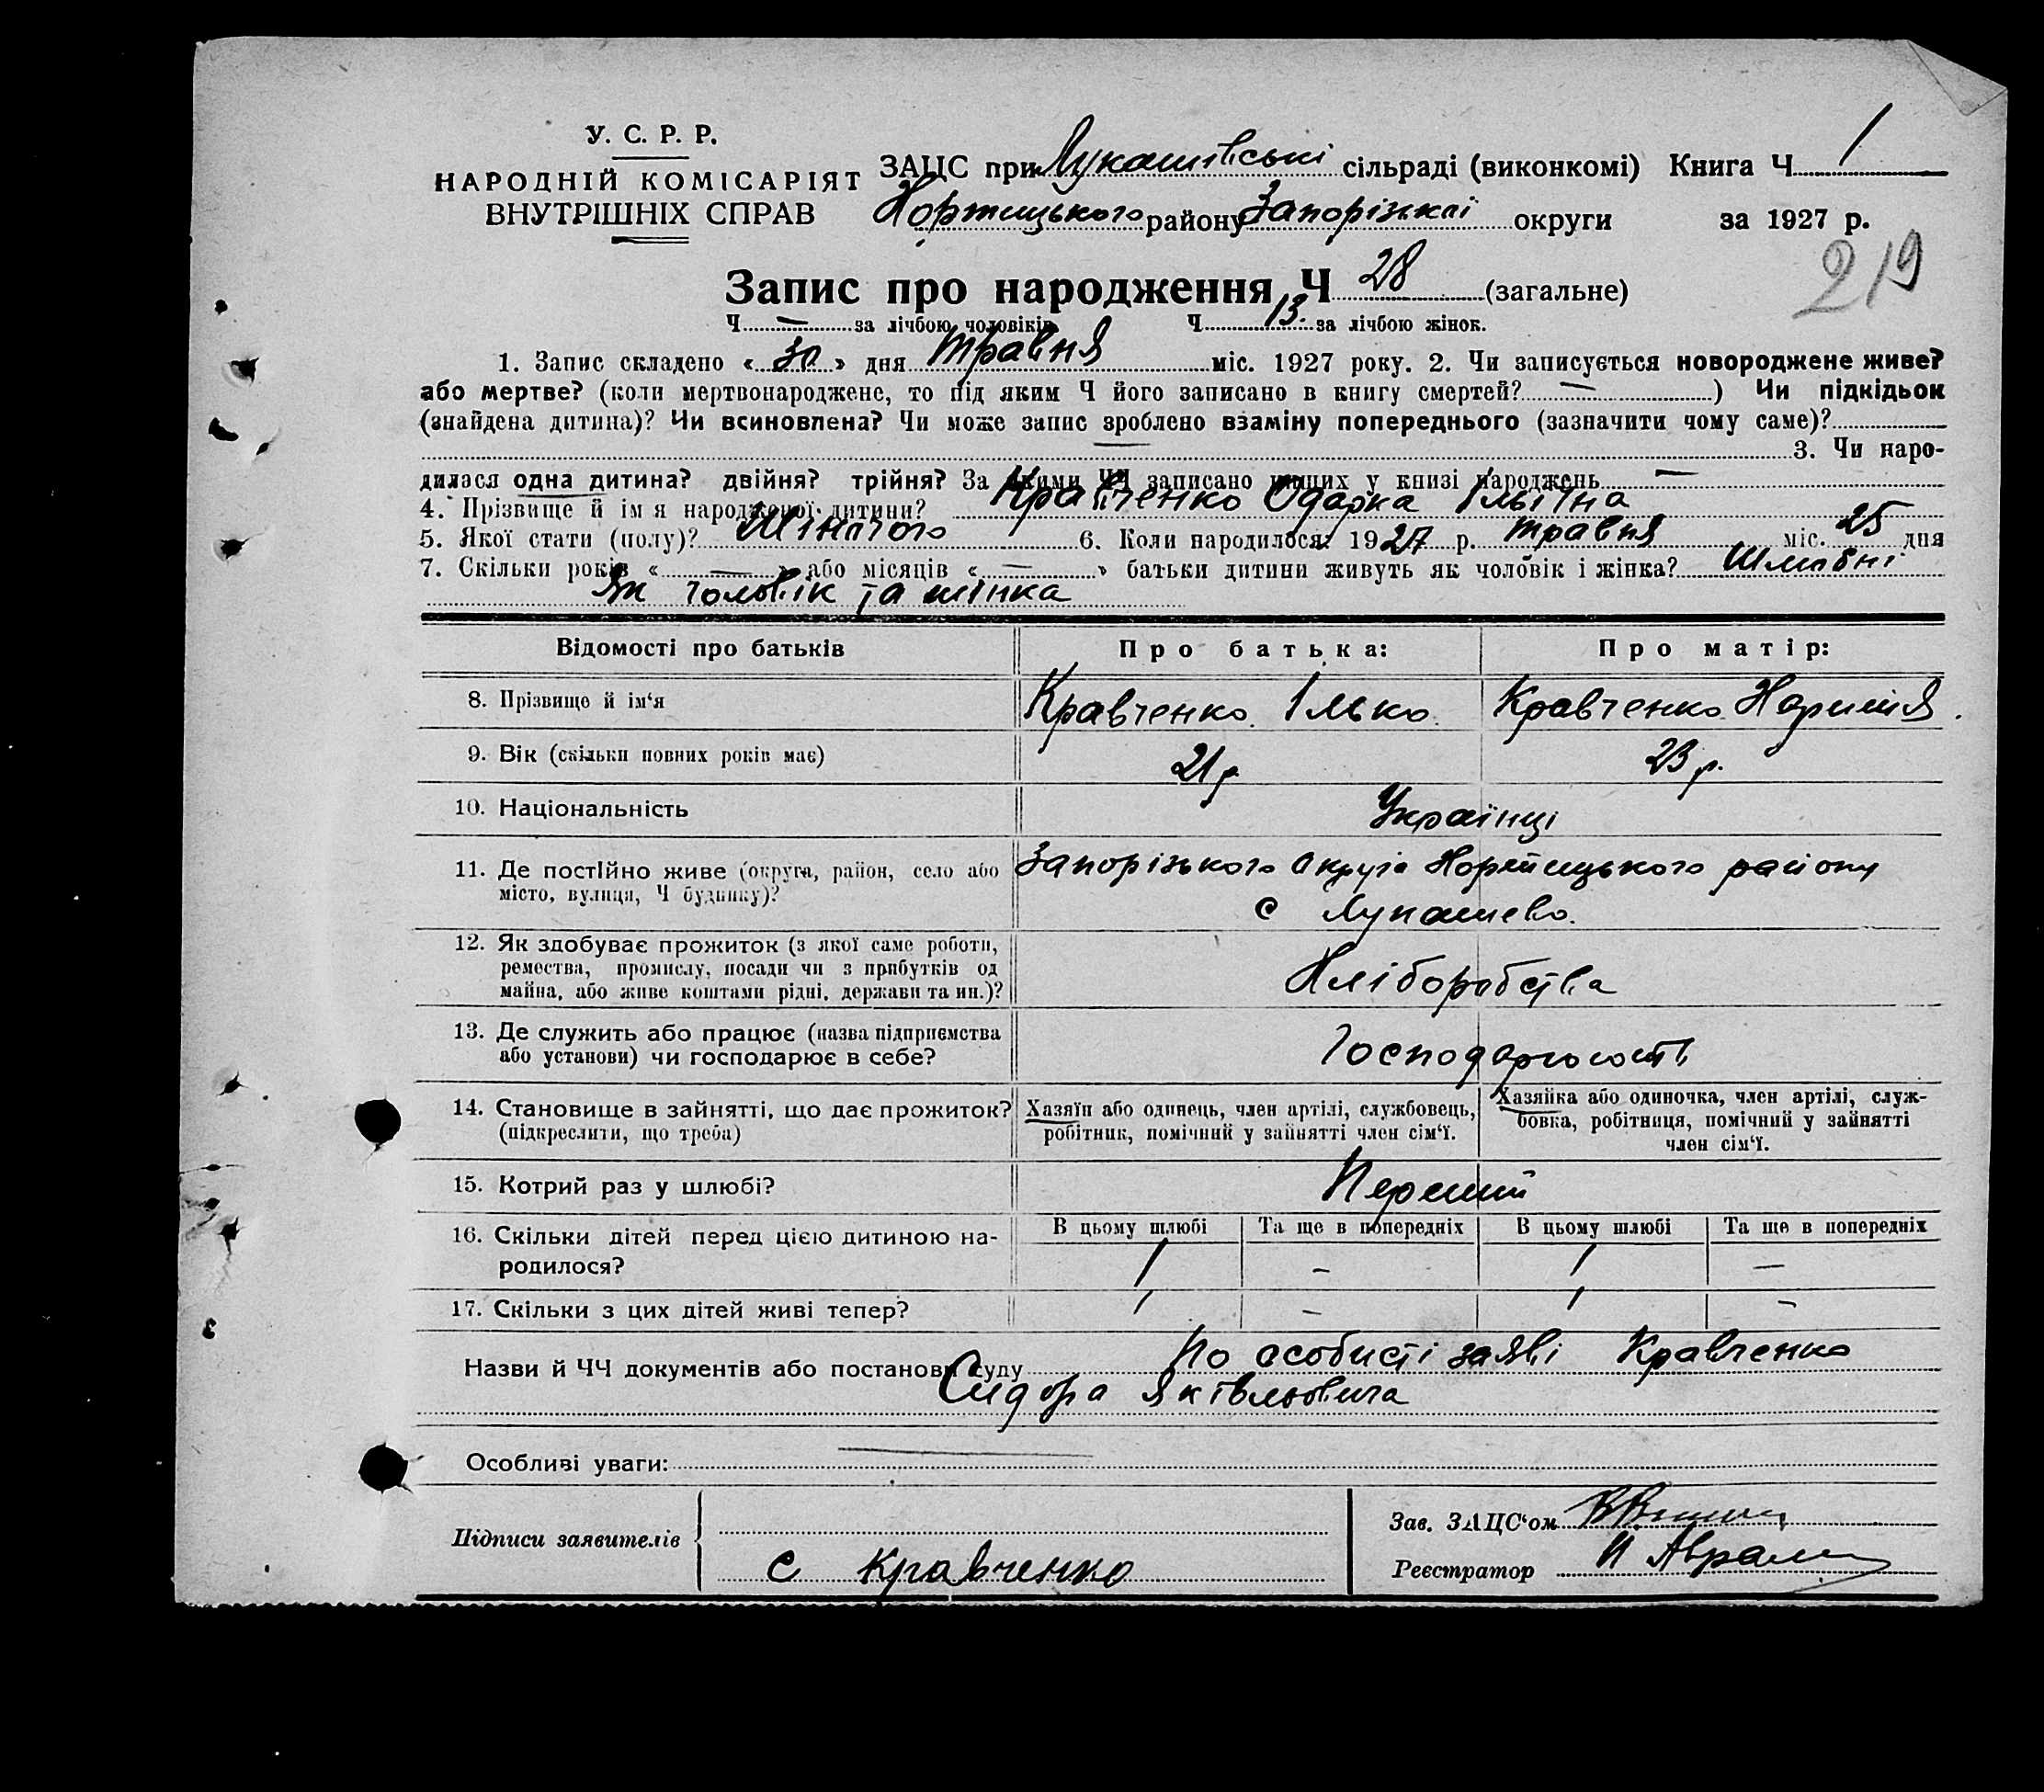 У. С. Р. Р.
НАРОДНІЙ КОМІСАРІЯТ
ВНУТРІШНІХ СПРАВ
ЗАЦС при Лукашівські сільраді (виконкомі) Книга Ч 1
Хортицького району Запорізької округи за 1927 р.
219
Запис про народження Ч 28 (загальне)
Ч — за лічбою чоловіків Ч 13. за лічбою жінок.
1. Запис складено « 30 » дня травня міс. 1927 року. 2. Чи записується новороджене живе?
або мертве? (коли мертвонароджене, то під яким Ч його записано в книгу смертей? — ) Чи підкідьок
(знайдена дитина)? Чи всиновлена? Чи може запис зроблено взаміну попереднього (зазначити чому саме)?
— 3. Чи наро-
дилася одна дитина? двійня? трійня? За якими ЧЧ записано інших у книзі народжень —
4. Прізвище й ім'я народженої дитини? Кравченко Одарка Ільїна
5. Якої стати (полу)? Жіночого 6. Коли народилося? 1927 р. травня міс. 25 дня
7. Скільки років « — » або місяців « — » батьки дитини живуть як чоловік і жінка? Шлюбні
як чоловік та жінка
Відомості про батьків Про батька: Про матір:
8. Прізвище й ім'я Кравченко Ілько Кравченко
9. Вік (скільки повних років має) 21 р. 23 р.
10. Національність Українці
11. Де постійно живе (округа, район, село або Запорізького округа Хортицького району
місто, вулиця, Ч будинку)? с Лукашево.
12. Як здобуває прожиток (з якої саме роботи,
ремества, промислу, посади чи з прибутків од Хліборобства
майна, або живе коштами рідні, держави та ин.)?
13. Де служить або працює (назва підприємства
або установи) чи господарює в себе?
14. Становище в зайнятті, що дає прожиток? Хазяїн або одинець, член артілі, службовець, Хазяйка або одиночка, член артілі, служ-
(підкреслити, що треба) робітник, помічний у зайнятті член сім'ї. бовка, робітниця, помічний у зайнятті
член сім'ї.
15. Котрий раз у шлюбі? Перший
В цьому шлюбі Та ще в попередніх В цьому шлюбі Та ще в попередніх
16. Скільки дітей перед цією дитиною на-
родилося? 1 – 1 —
17. Скільки з цих дітей живі тепер? 1 – 1 –
Назви й ЧЧ документів або постанови суду По особисті заяві Кравченко
Сидора Яківльовича
Особливі уваги: —
Підписи заявителів с Кравченко
Зав. ЗАЦС'ом
Реєстратор